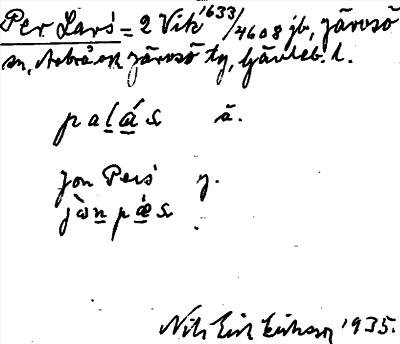 Per Lars = 2 Vik 1633/4608 jb, Järvsö
sn, Arbrå ok Järvsö tg, Gävleb. l.
palás ä.
Jon Pers y.
jòn pǽs
Nils Eriksson 1935.